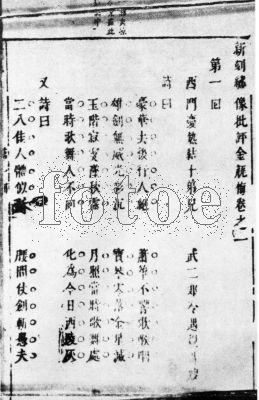 新刻繡像批評金瓶梅卷之一
第一回
西門慶熱結十弟兄 武二郎冷遇親哥嫂
詩曰
豪華去後行人絕 簫箏不響歌喉咽
雄劍無威光彩沉 寶琴零落金星滅
玉階寂寞墜秋露 月照當時歌舞處
當時歌舞人不回 化為今日西陵灰
又詩曰
二八佳人體似酥 腰間仗劍斬愚夫
fotoe